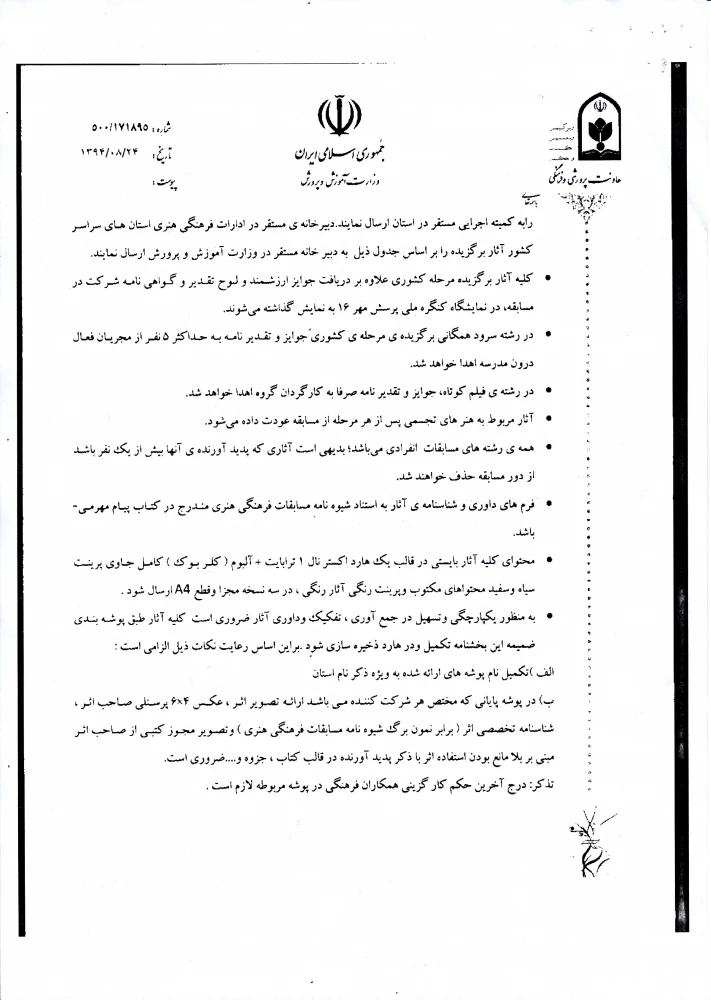 شماره : ۵۰۰/۱۷۱۸۹۵
تاریخ : ۱۳۹۴/۰۸/۲۴
پیوست :
جمهوری اسلامی ایران
وزارت آموزش و پرورش
معاونت پرورشی و فرهنگی
باسمه تعالی
رابه کمیته اجرایی مستقر در استان ارسال نمایند.دبیرخانه ی مستقر در ادارات فرهنگی هنری استان های سراسر
کشور آثار برگزیده را بر اساس جدول ذیل به دبیر خانه مستقر در وزارت آموزش و پرورش ارسال نمایند.
• کلیه آثار برگزیده مرحله کشوری علاوه بر دریافت جوایز ارزشمند و لوح تقدیر و گواهی نامه شرکت در
مسابقه، در نمایشگاه کنگره ملی پرسش مهر ۱۶ به نمایش گذاشته می‌شوند.
• در رشته سرود همگانی برگزیده ی مرحله ی کشوری جوایز و تقدیر نامه به حداکثر ۵ نفر از مجریان فعال
درون مدرسه اهدا خواهد شد.
• در رشته ی فیلم کوتاه، جوایز و تقدیر نامه صرفا به کارگردان گروه اهدا خواهد شد.
• آثار مربوط به هنر های تجسمی پس از هر مرحله از مسابقه عودت داده می‌شود.
• همه ی رشته های مسابقات انفرادی می‌باشد؛ بدیهی است آثاری که پدید آورنده ی آنها بیش از یک نفر باشد
از دور مسابقه حذف خواهند شد.
• فرم های داوری و شناسنامه ی آثار به استناد شیوه نامه مسابقات فرهنگی هنری مندرج در کتاب پیام مهرمی-
باشد.
• محتوای کلیه آثار بایستی در قالب یک هارد اکستر نال ۱ ترابایت + آلبوم ( کلر بوک ) کامل جاوی پرینت
سیاه وسفید محتواهای مکتوب وپرینت رنگی آثار رنگی ، در سه نسخه مجزا وقطع A4 ارسال شود .
• به منظور یکپارچگی وتسهیل در جمع آوری ، تفکیک وداوری آثار ضروری است کلیه آثار طبق پوشه بندی
ضمیمه این بخشنامه تکمیل ودر هارد ذخیره سازی شود .براین اساس رعایت نکات ذیل الزامی است :
الف )تکمیل نام پوشه های ارائه شده به ویژه ذکر نام استان
ب) در پوشه پایانی که مختص هر شرکت کننده می باشد ارائه تصویر اثر ، عکس ۴×۶ پرسنلی صاحب اثر ،
شناسنامه تخصصی اثر ( برابر نمون برگ شیوه نامه مسابقات فرهنگی هنری ) وتصویر مجوز کتبی از صاحب اثر
مبنی بر بلا مانع بودن استفاده اثر با ذکر پدید آورنده در قالب کتاب ، جزوه و....ضروری است.
تذکر: درج آخرین حکم کار گزینی همکاران فرهنگی در پوشه مربوطه لازم است .